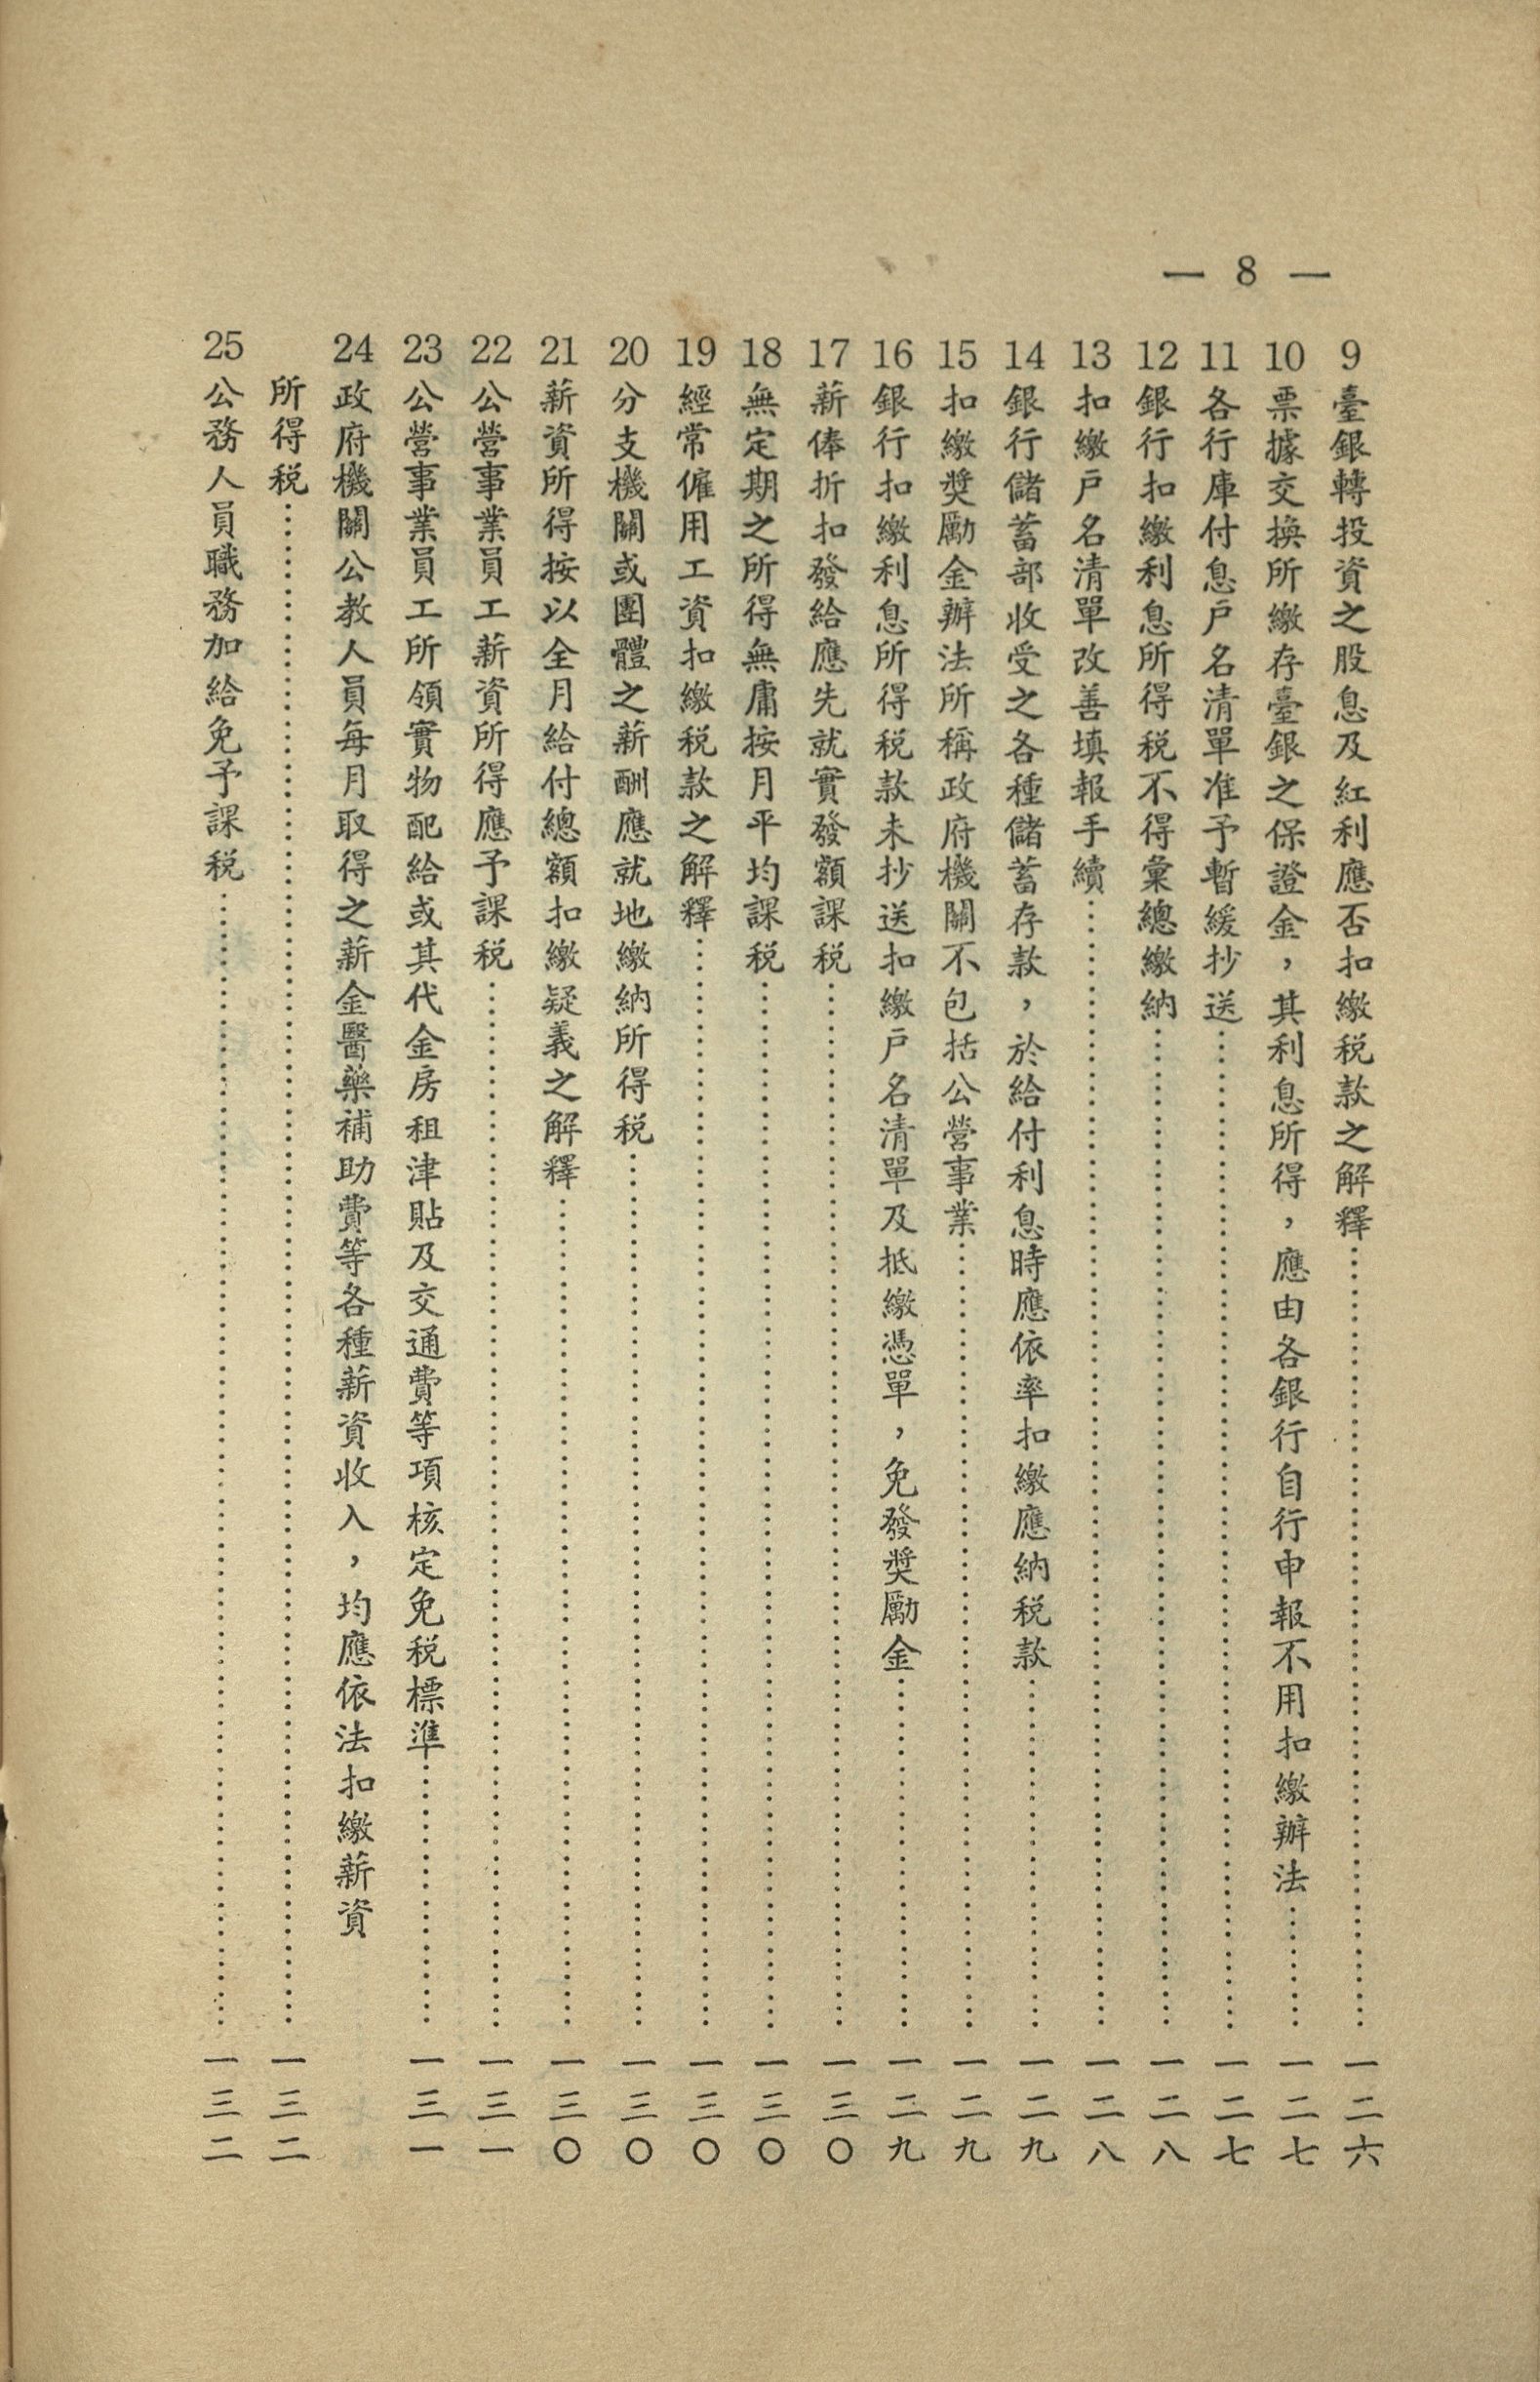 — 8 —
9 臺銀轉投資之股息及紅利應否扣繳税款之解釋……一二六
10 票據交換所繳存臺銀之保證金，其利息所得，應由各銀行自行申報不用扣繳辦法……一二七
11 各行庫付息戶名清單准予暫緩抄送……一二七
12 銀行扣繳利息所得税不得彙總繳納……一二八
13 扣繳戶名清單改善填報手續……一二八
14 銀行儲蓄部收受之各種儲蓄存款，於給付利息時應依率扣繳應納税款……一二九
15 扣繳獎勵金辦法所稱政府機關不包括公營事業……一二九
16 銀行扣繳利息所得税款未抄送扣繳戶名清單及抵繳憑單，免發獎勵金……一二九
17 薪俸折扣發給應先就實發額課税……一三〇
18 無定期之所得無庸按月平均課税……一三〇
19 經常僱用工資扣繳税款之解釋……一三〇
20 分支機關或團體之薪酬應就地繳納所得税……一三〇
21 薪資所得按以全月給付總額扣繳疑義之解釋……一三〇
22 公營事業員工薪資所得應予課税……一三一
23 公營事業員工所領實物配給或其代金房租津貼及交通費等項核定免税標準……一三一
24 政府機關公教人員每月取得之薪金醫藥補助費等各種薪資收入，均應依法扣繳薪資
所得税……一三二
25 公務人員職務加給免予課税……一三二